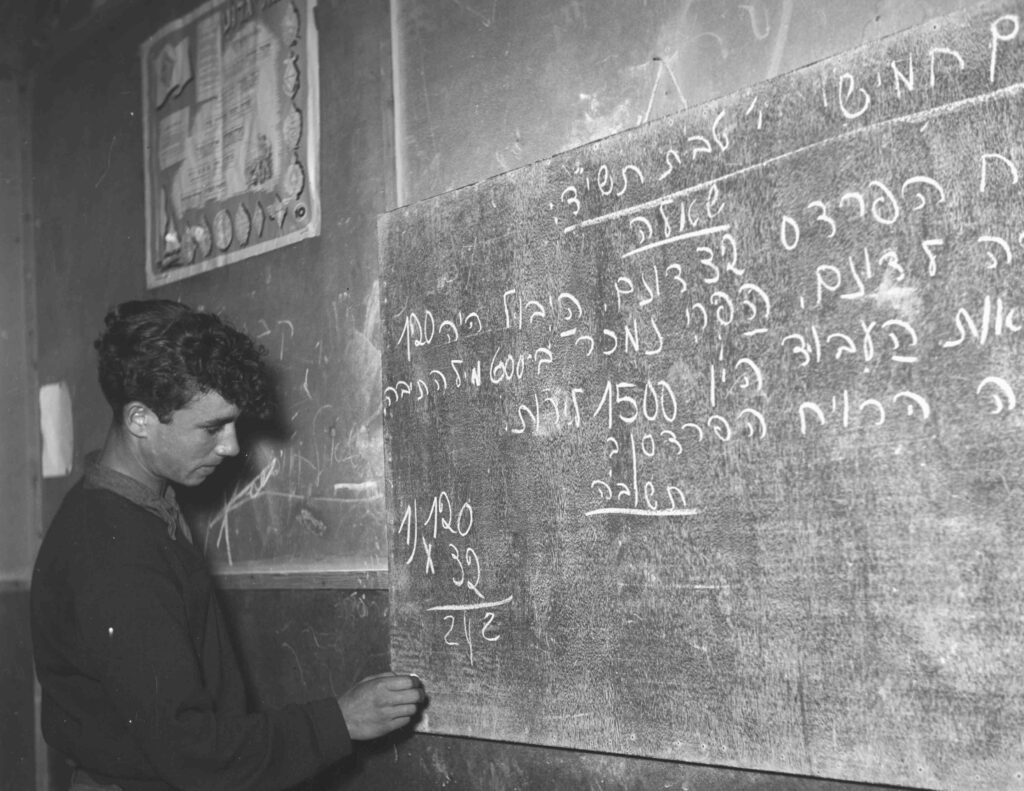 ם חמישי י' טבת תשי"ד.
שאלה
ח הפרדס 32 דונם. היבול היה 120
ה לדונם. הפרי נמכר מיל התיבה
אות העבוד היו 1500 לירות.
ה הרויח הפרדסן
תשובה
1) 120
x 32